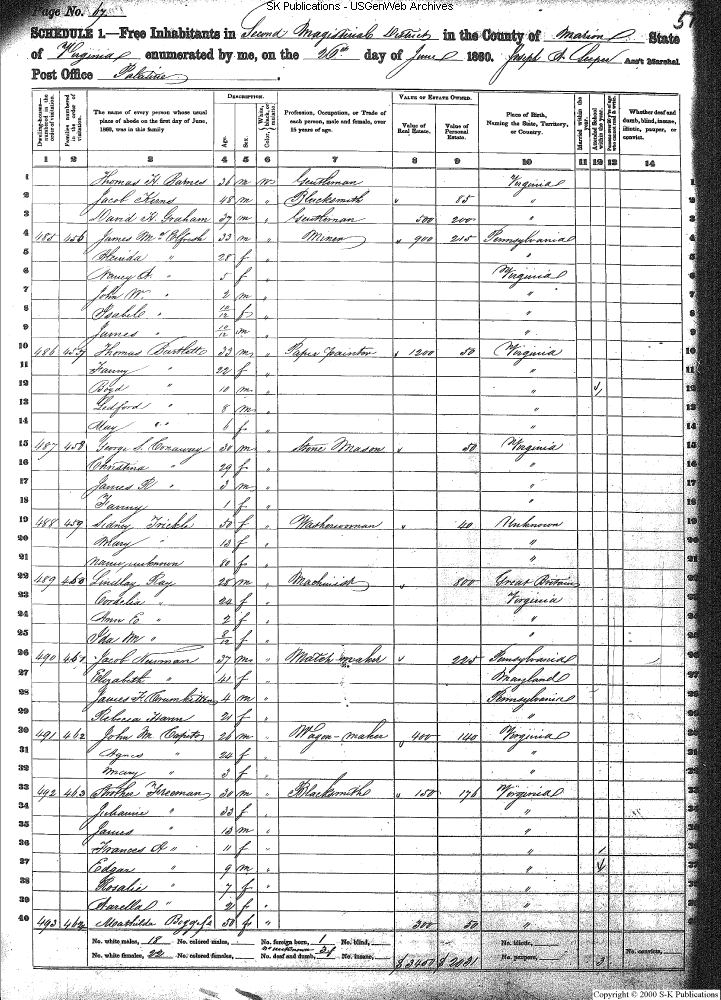 SK Publications - USGenWeb Archives
Page No. 67
SCHEDULE 1.—Free Inhabitants in Second Magisterial District in the County of Marion State
of Virginia enumerated by me, on the 26th day of June 1860. Ass't Marshal.
Post Office Palatine
Dwelling-houses—numbered in the order of visitation.
Families numbered in the order of visitation.
The name of every person whose usual place of abode on the first day of June, 1860, was in this family
DESCRIPTION.
Age.
Sex.
Color, White, black, or mulatto.
Profession, Occupation, or Trade of each person, male and female, over 15 years of age.
VALUE OF ESTATE OWNED.
Value of Real Estate.
Value of Personal Estate.
Place of Birth, Naming the State, Territory, or Country.
Married within the year.
Attended School within the year.
Whether deaf and dumb, blind, insane, idiotic, pauper, or convict.
1 2 3 4 5 6 7 8 9 10 11 12 13 14
1 Thomas H. Barnes 36 m W Gentleman Virginia 1
2 Jacob Kerns 48 m " Blacksmith " 85 " 2
3 David H. Graham 37 m " Gentleman 500 200 " 3
4 485 456 James 33 m " Miner " 900 215 Pennsylvania 4
5 " 28 f " " 5
6 Nancy A. " 5 f " Virginia 6
7 John W. " 2 m " " 7
8 Isabel " 10/12 f " " 8
9 James " 10/12 m " " 9
10 486 457 Thomas Bartlett 33 m " Paper painter " 1200 50 Virginia 10
11 Fanny " 22 f " " 11
12 Boyd " 10 m " " 12
13 Ledford " 8 m " " 13
14 May " 6 f " " 14
15 487 458 George S. Conaway 30 m " Stone Mason " 50 Virginia 15
16 Christina " 29 f " " 16
17 James R " 3 m " " 17
18 Fanny " 1 f " " 18
19 488 459 Sidney Trickle 50 f " Washerwoman " 40 Unknown 19
20 Mary " 13 f " " 20
21 Nancy unknown 80 f " " 21
22 489 460 Lindlay Ray 28 m " Machinist " 800 Great Britain 22
23 Cordelia " 24 f " Virginia 23
24 Ann E. " 2 f " " 24
25 Ida M. " f " " 25
26 490 461 Jacob Newman 37 m " Match maker " 225 Pennsylvania 26
27 Elizabeth " 41 f " Maryland 27
28 James H. 4 m " Pennsylvania 28
29 Rebecca Hann 21 f " " 29
30 491 462 John M. 26 m " Wagon-maker " 400 140 Virginia 30
31 Agnes " 24 f " " 31
32 Mary " 3 f " " 32
33 492 463 Freeman 30 m " Blacksmith " 150 176 Virginia 33
34 Julianne " 33 f " " 34
35 James " 13 m " " 35
36 Frances A " 11 f " " 1 36
37 Edgar " 9 m " " 37
38 Rosalie " 7 f " " 38
39 " 2 f " " 39
40 493 Mathilda 50 f " 300 50 " 40
No. white males, 18 No. colored males, No. foreign born, 1 No. blind, No. idiotic,
No. white females, 22 No. colored females, No. deaf and dumb, No. insane, $3400 $2031 No. paupers, 3 No. convicts,
Copyright © 2000 S-K Publications